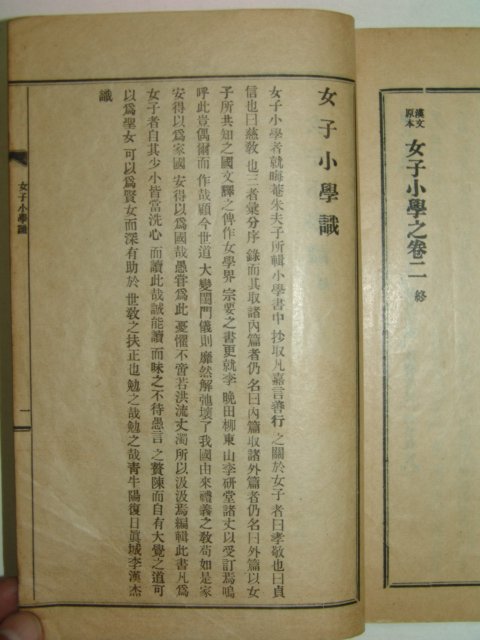 漢文
原本
女子小學之卷二 終
女子小學識
女子小學者就晦菴朱夫子所輯小學書中抄取凡嘉言善行之關於女子者曰孝敬也曰貞
信也曰慈敎也三者彙分序錄而其取諸內篇者仍名曰內篇取諸外篇者仍名曰外篇以女
子所共知之國文釋之俾作女學界宗要之書更就李晩田柳東山李研堂諸丈以受訂焉嗚
呼此豈偶爾而作哉顧今世道大變閨門儀則靡然解弛壞了我國由來禮義之敎苟如是家
安得以爲家國安得以爲國哉愚甞爲此憂懼不啻若洪流丈濁所以汲汲焉編輯此書凡爲
女子者自其少小皆當洗心而讀此哉誠能讀而味之不待愚言之贅陳而自有大覺之道可
以爲聖女可以爲賢女而深有助於世敎之扶正也勉之哉勉之哉靑牛陽復日眞城李漢杰
識
女子小學識
一